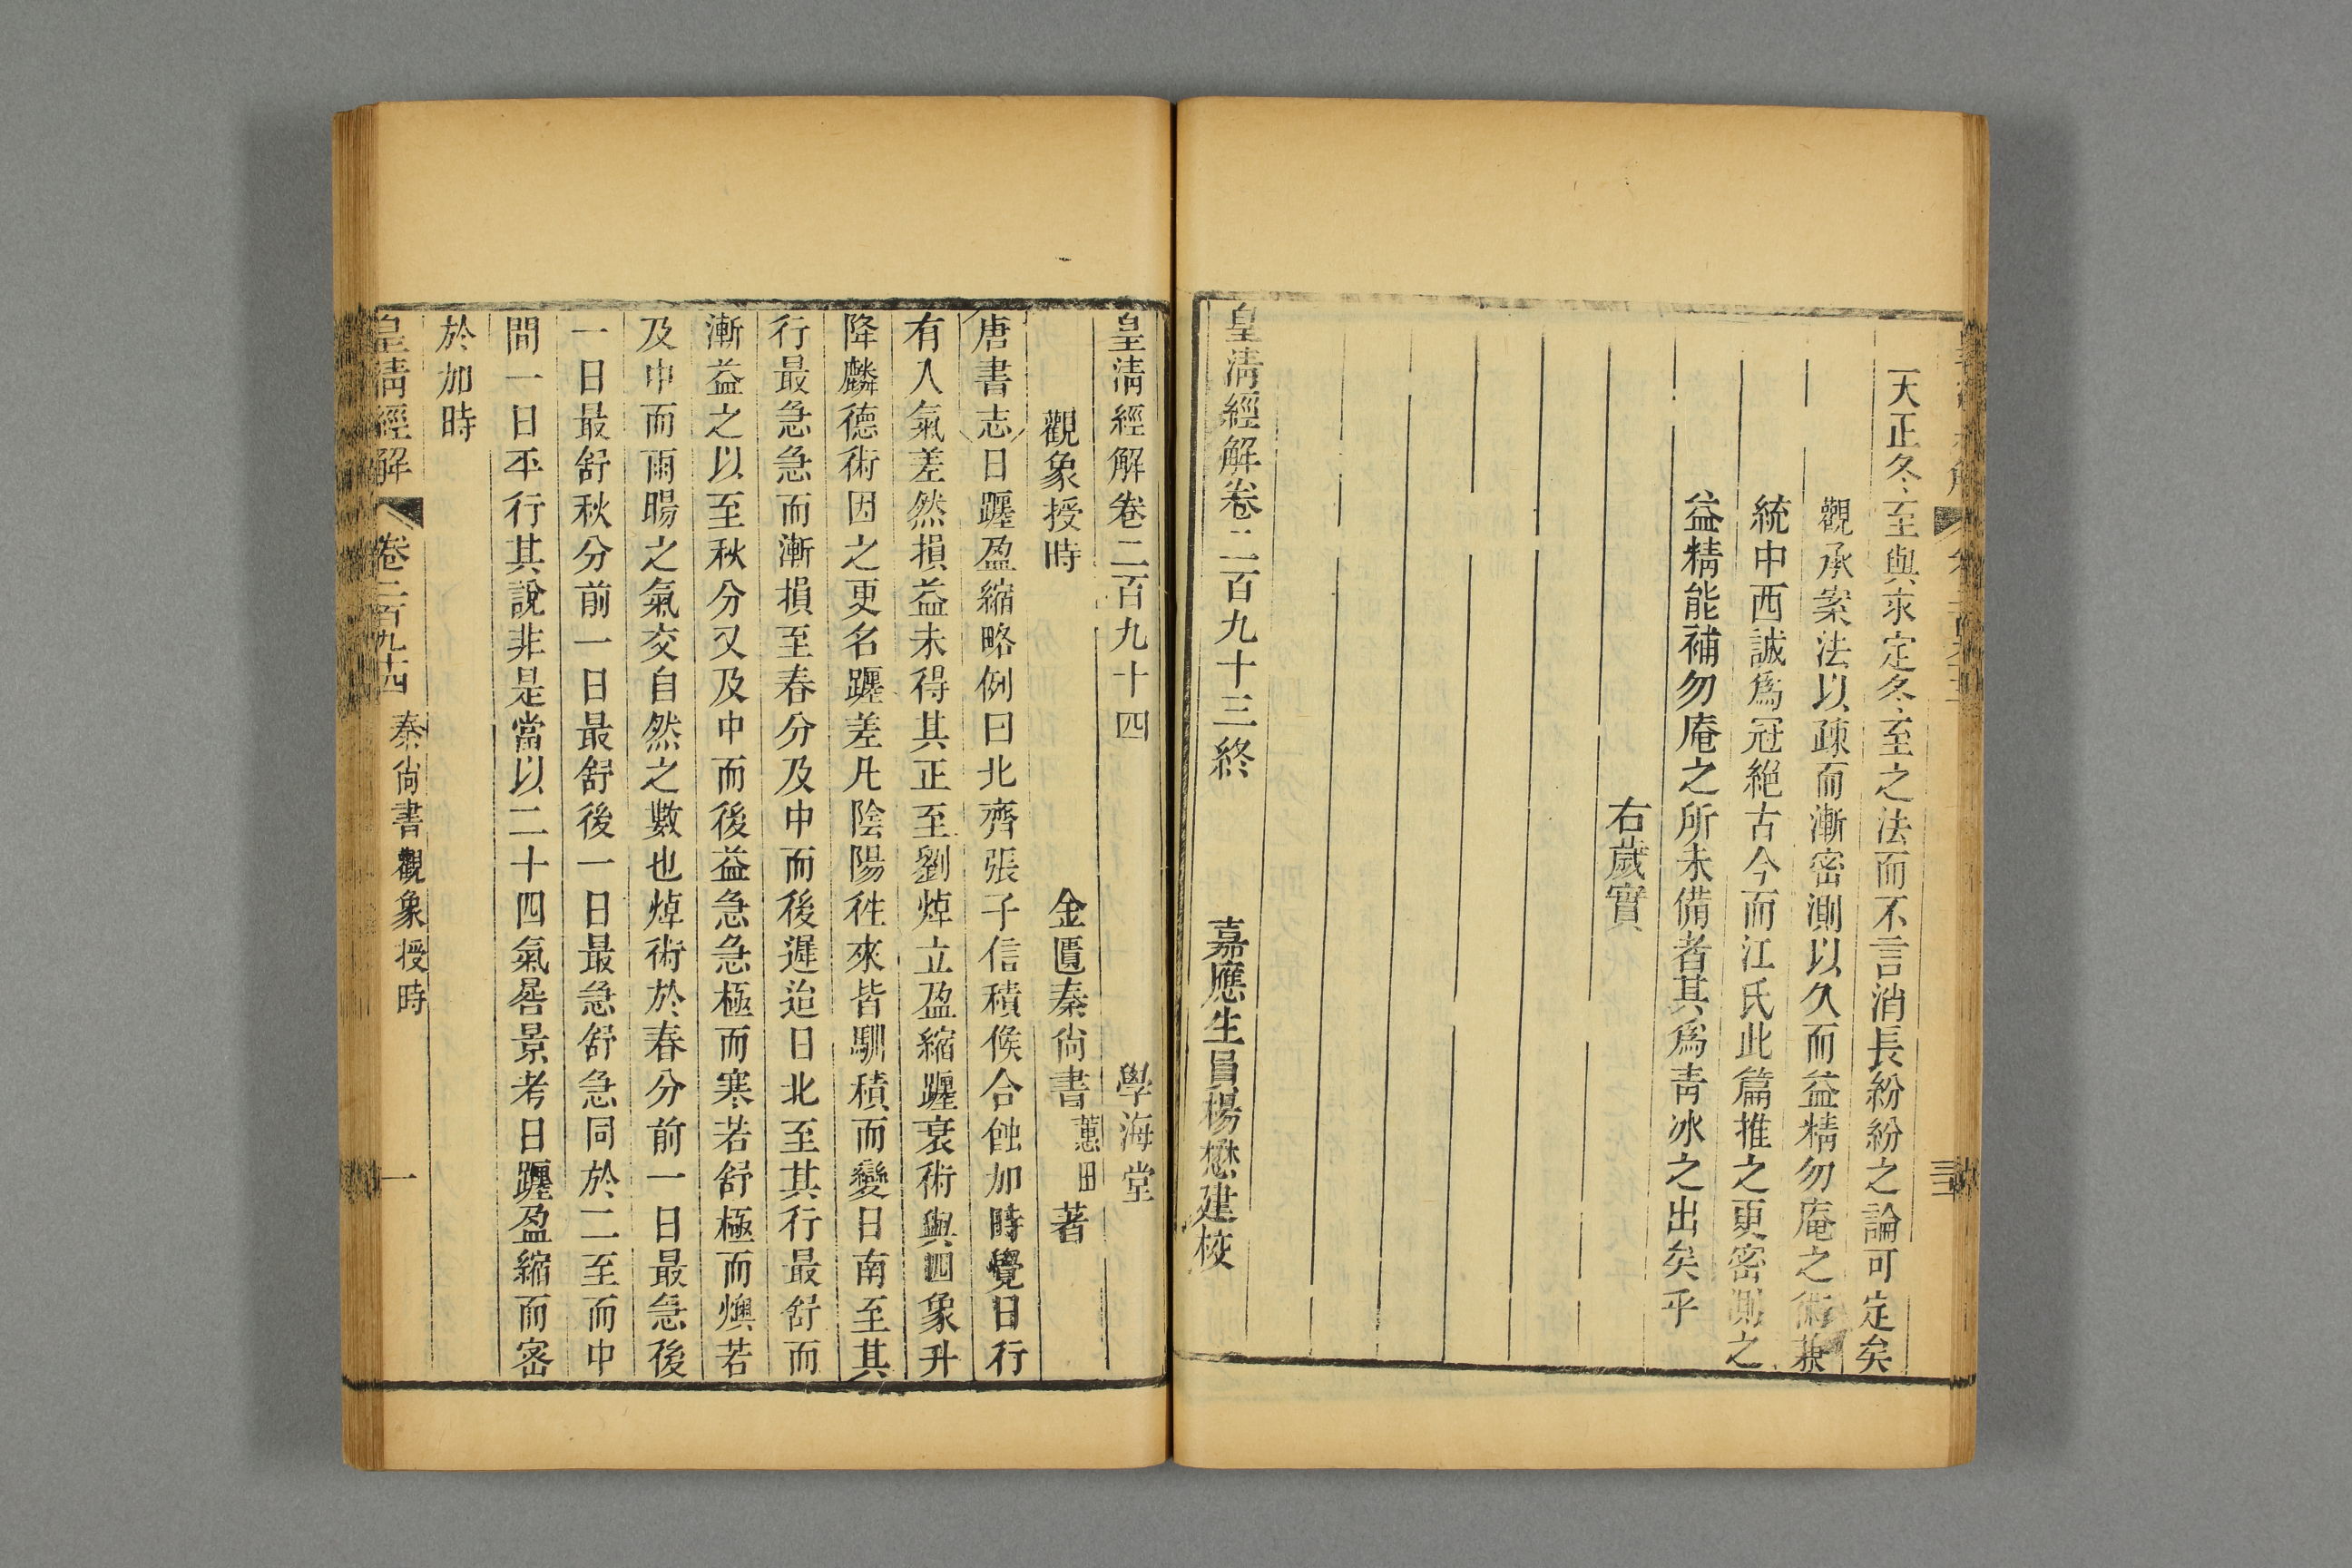 天正冬至與求定冬至之法而不言消長紛紛之論可定矣
觀承案法以疎而漸密測以久而益精勿庵之術兼
統中西誠爲冠絕古今而江氏此篇推之更密測之
益精能補勿庵之所未備者其爲青冰之出矣乎
右歲實
皇清經解卷二百九十三終
嘉應生員楊懋建校
皇清經解卷二百九十四
學海堂
觀象授時
金匱秦尙書蕙田著
唐書志日躔盈縮略例曰北齊張子信積候合蝕加時覺日行
有入氣差然損益未得其正至劉焯立盈縮躔衰術與四象升
降麟德術因之更名躔差凡陰陽徃來皆馴積而變日南至其
行最急急而漸損至春分及中而後遲迨日北至其行最舒而
漸益之以至秋分又及中而後益急急極而寒若舒極而燠若
及中而雨暘之氣交自然之數也焯術於春分前一日最急後
一日最舒秋分前一日最舒後一日最急舒急同於二至而中
間一日平行其說非是當以二十四氣晷景考日躔盈縮而密
於加時
皇清經解
卷二百九十四
秦尙書觀象授時
一